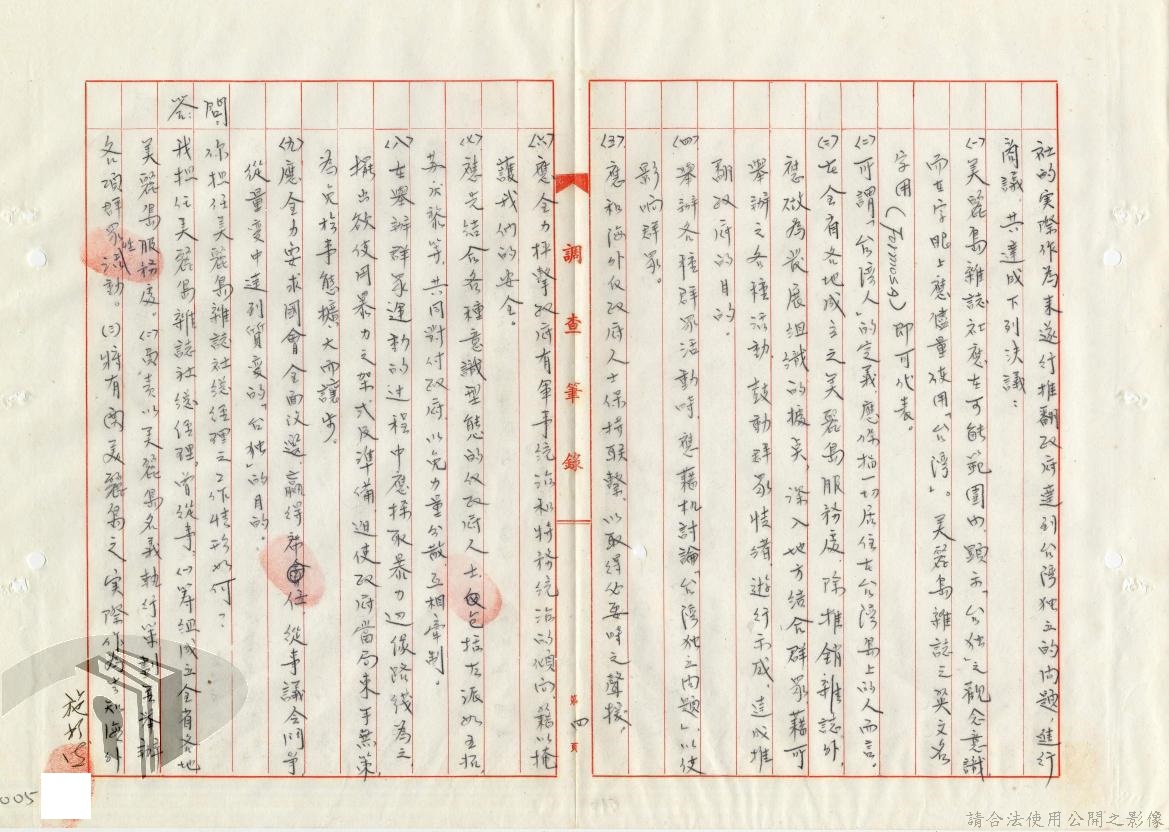 社的实際作為来遂行推翻政府達到台湾独立的问題,進行
商議,共達成下列決議:
(一)美麗島雜誌社應在可能範圍內,顕示「台独」之觀念意識,
而在字眼上應儘量使用「台湾」。美麗島雜誌之英文名
字用(Formosa)即可代表。
(二)可謂「台湾人」的定義應係指一切居住在台湾島上的人而言。
(三)在全省各地成立之美麗島服務處,除推銷雜誌外,
應做為發展組織的據奌,深入地方結合群眾藉可
舉辦之各種活動鼓動群眾情緒,遊行示威,達成推
翻政府的目的。
(四)舉辦各種群眾活動時,應藉机討論「台湾独立问題」,以使
影响群眾。
(五)應和海外仮政府人士保持联繫,以取得必要時之聲援,
(六)應全力抨擊政府有軍事統治和特務統治的傾向藉以掩
護我們的安全。
(七)應先结合各種意識型態的仮政府人士包括左派如王拓,
蘇慶黎等,共同對付政府,以免力量分散互相牽制。
(八)在舉辦群眾運動的过程中應採取暴力边缘路线為之
擺出欲使用暴力之架式及準備,迫使政府當局束手無策,
為免於事態擴大而讓步。
(九)應全力要求國會全面改選,贏得席位從事議会鬥爭
從量变中達到質变的「台独」的目的。
問:你担任美麗島雜誌社總經理之工作情形如何?
答:我担任美麗島雜誌社總經理,曾從事,(一)筹組成立全省各地
美麗島服務處。(二)負責以美麗島名義執行策劃並举辦
各項群眾性活動。(三)將有関美麗島之实際作為告知海外
調查筆錄
第四頁
施明德
005
請合法使用公開之影像